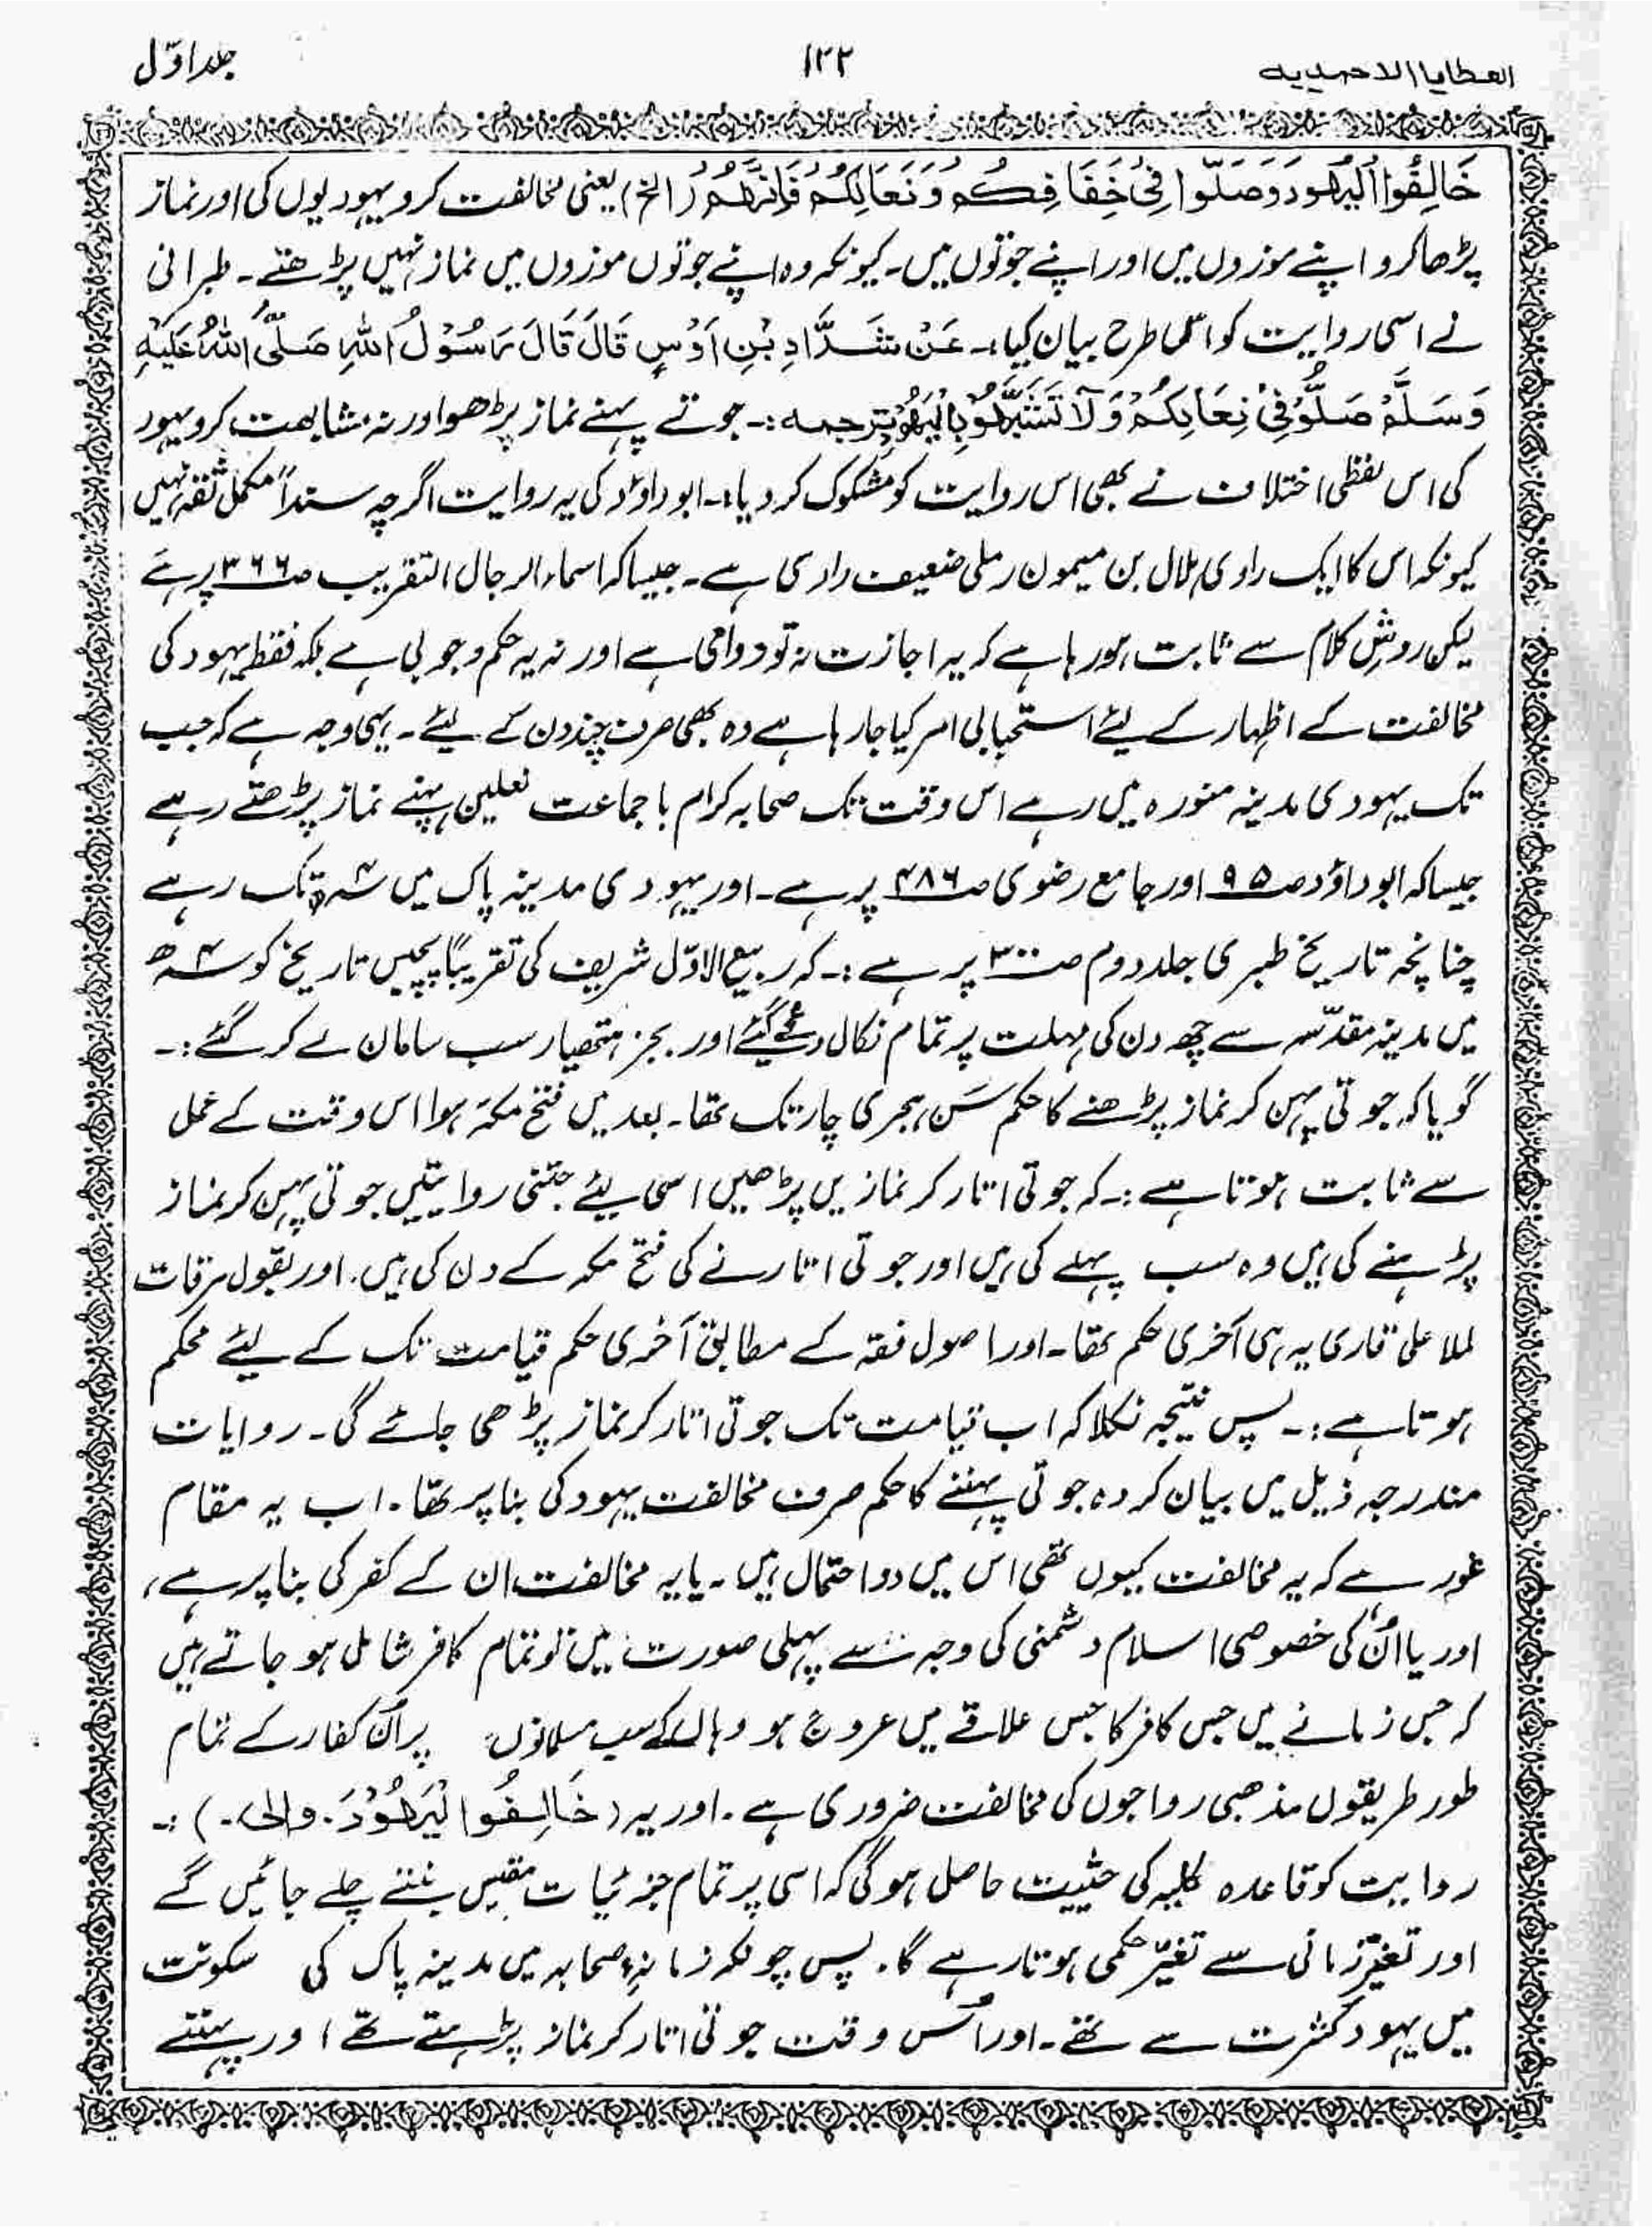 العطایا الاحمدیہ ۱۲۲ جلد اوّل
خَالِفُوا الْیَہُودَ وَصَلُّوا فِیْ خِفَافِکُمْ وَنَعَالِکُمْ فَاِنَّہُمْ (الخ) یعنی مخالفت کرو یہودیوں کی اور نماز
پڑھا کرو اپنے موزوں میں اور اپنے جوتوں میں۔ کیونکہ وہ اپنے جوتوں موزوں میں نماز نہیں پڑھتے۔ طبرانی
نے اسی روایت کو اس طرح بیان کیا:۔ عَنْ شَدَّادِ بْنِ اَوْسٍ قَالَ قَالَ رَسُوْلُ اللّٰہِ صَلَّی اللّٰہُ عَلَیْہِ
وَسَلَّمْ صَلُّوْ فِیْ نِعَالِکُمْ وَلَا تَشَبَّہُوْ بِالْیَہُوْدِ ترجمہ:۔ جوتے پہنے نماز پڑھو اور نہ مشابہت کرو یہود
کی اس لفظی اختلاف نے بھی اس روایت کو مشکوک کر دیا:۔ ابوداؤد کی یہ روایت اگرچہ سنداً مکمل ثقہ نہیں
کیونکہ اس کا ایک راوی ہلال بن میمون رملی ضعیف راوی ہے۔ جیسا کہ اسماء الرجال التقریب صـ۳۶۶ پر ہے
لیکن روشِ کلام سے ثابت ہو رہا ہے کہ یہ اجازت نہ تو دوامی ہے اور نہ یہ حکم وجوبی ہے بلکہ فقط یہود کی
مخالفت کے اظہار کے لیئے استحبابی امر کیا جا رہا ہے وہ بھی صرف چند دن کے لیئے۔ یہی وجہ ہے کہ جب
تک یہودی مدینہ منورہ میں رہے اس وقت تک صحابہ کرام باجماعت نعلین پہنے نماز پڑھتے رہے
جیسا کہ ابوداؤد صـ۹۵ اور جامع رضوی صـ۴۸۶ پر ہے۔ اور یہودی مدینہ پاک میں ۴ھ تک رہے
چنانچہ تاریخ طبری جلد دوم صـ۳۰۰ پر ہے:۔ کہ ربیع الاوّل شریف کی تقریباً پچیس تاریخ کو ۴ھ
میں مدینہ مقدّسہ سے چھ دن کی مہلت پر تمام نکال دیئے گئے اور بجز ہتھیار سب سامان لے کر گئے:۔
گویا کہ جوتی پہن کر نماز پڑھنے کا حکم سَن ہجری چار تک تھا۔ بعد میں فتح مکہ ہوا اس وقت کے عمل
سے ثابت ہوتا ہے:۔ کہ جوتی اتار کر نمازیں پڑھیں اسی لیئے جتنی روایتیں جوتی پہن کر نماز
پڑہنے کی ہیں وہ سب پہلے کی ہیں اور جوتی اتارنے کی فتح مکہ کے دن کی ہیں۔ اور بقول مرقات
ملا علی قاری یہ ہی آخری حکم تھا۔ اور اصول فقہ کے مطابق آخری حکم قیامت تک کے لیئے محکم
ہوتا ہے:۔ پس نتیجہ نکلا کہ اب قیامت تک جوتی اتار کر نماز پڑھی جائے گی۔ روایات
مندرجہ ذیل میں بیان کردہ جوتی پہننے کا حکم صرف مخالفت یہود کی بنا پر تھا۔ اب یہ مقام
غور ہے کہ یہ مخالفت کیوں تھی اس میں دو احتمال ہیں۔ یا یہ مخالفت ان کے کفر کی بنا پر ہے،
اور یا اُن کی خصوصی اسلام دشمنی کی وجہ سے پہلی صورت میں تو تمام کافر شامل ہو جاتے ہیں
کہ جس زمانے میں جس کافر کا جس علاقے میں عروج ہو وہاں کے سب مسلمانوں پر اُن کفار کے تمام
طور طریقوں مذھبی رواجوں کی مخالفت ضروری ہے۔ اور یہ (خَالِفُوا لْیَہُوْدَ۔ والی۔):۔
روایت کو قاعدہ کلیہ کی حثییت حاصل ہو گی کہ اسی پر تمام جزئیات مقیس بنتے چلے جائیں گے
اور تغیّر زمانی سے تغیّر حکمی ہوتا رہے گا۔ پس چونکہ زمانہء صحابہ میں مدینہ پاک کی سکونت
میں یہود کثرت سے تھے۔ اور اُس وقت جوتی اتار کر نماز پڑہتے تھے اور پہنتے